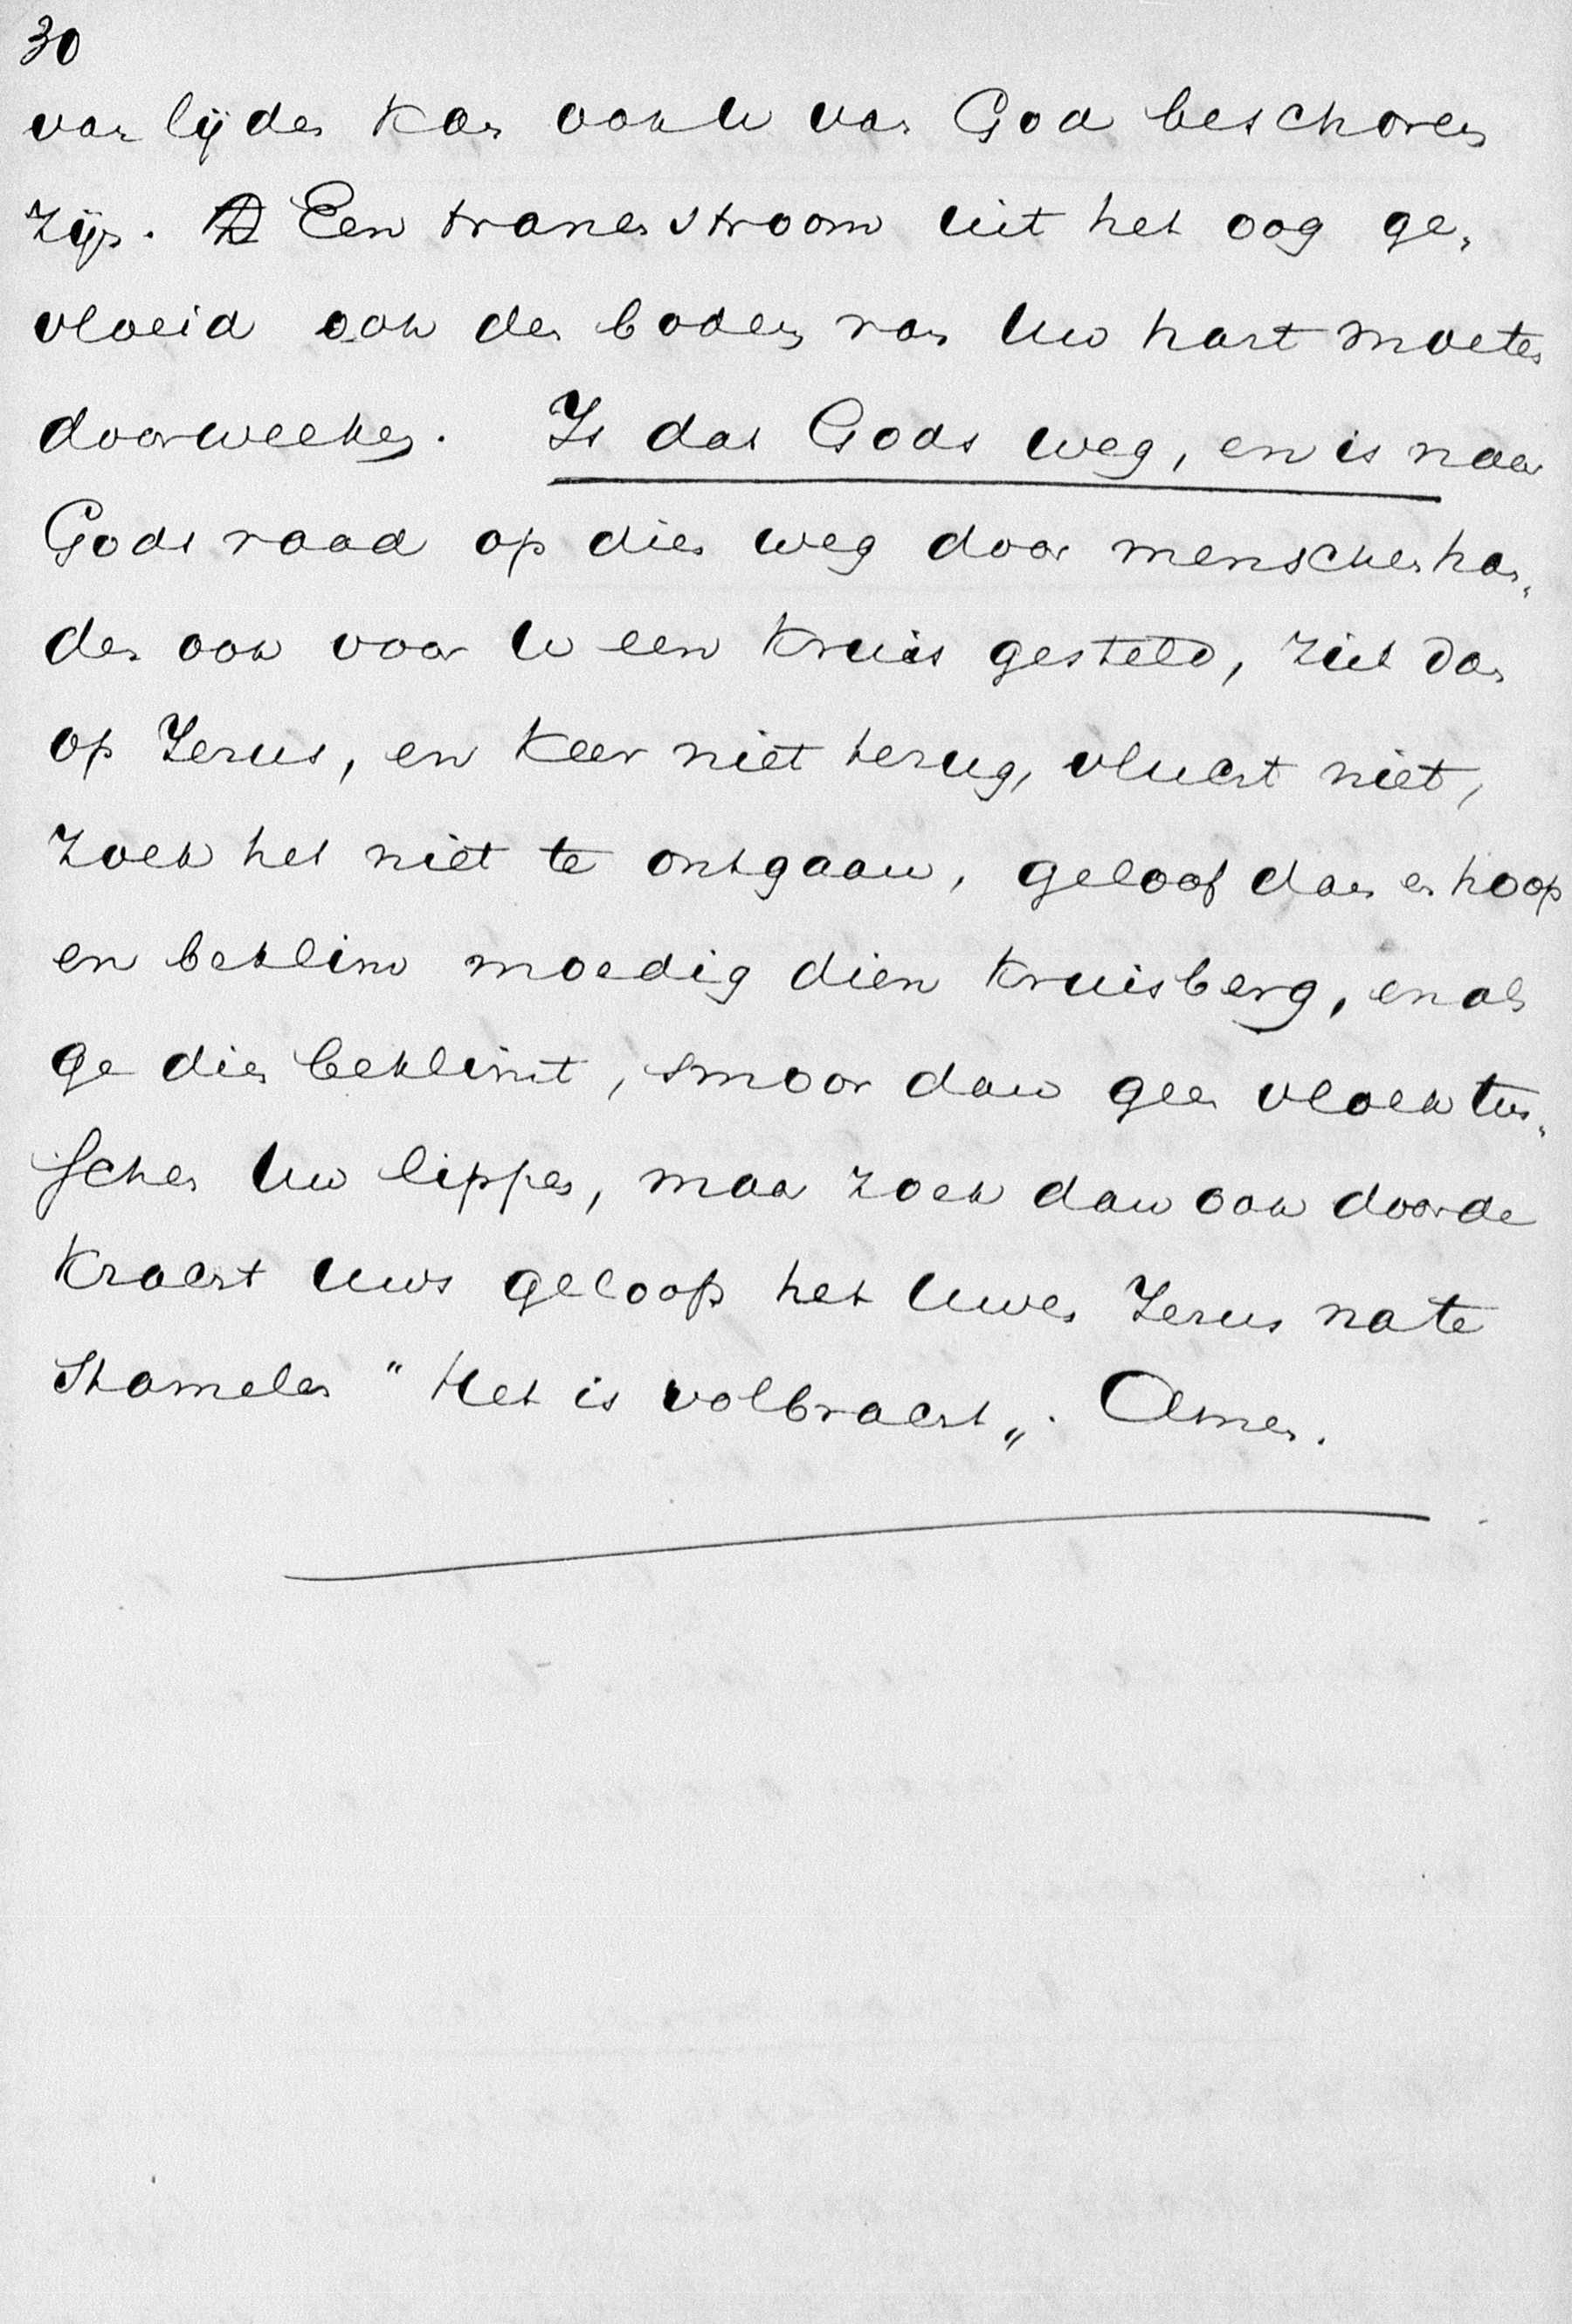 30
van lijden kan ook U van God beschoren
zijn. Een tranenstroom uit het oog ge-
vloeid ook den bodem van Uw hart moeten
doorweeken. Is dat Gods weg, en is naar
Gods raad op dien weg door menschenhan-
den ook voor U een kruis gesteld, ziet dan
op Jezus, en keer niet terug, vlucht niet,
zoek het niet te ontgaan, geloof dan en hoop
en beklim moedig dien kruisberg, en als
ge dien beklimt, smoor dan geen vloek tus-
schen Uw lippen, maar zoek dan ook door de
kracht Uws geloofs het Uwen Jezus na te
stamelen "Het is volbracht„. Amen.